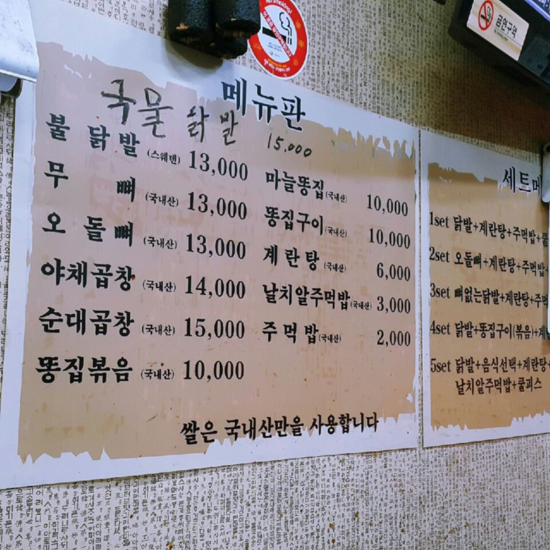 메뉴판
국물 닭발 15.000
불닭발 (스웨덴) 13,000
무뼈 (국내산) 13,000
오돌뼈 (국내산) 13,000
야채곱창 (국내산) 14,000
순대곱창 (국내산) 15,000
똥집볶음 (국내산) 10,000
마늘똥집 (국내산) 10,000
똥집구이 (국내산) 10,000
계란탕 (국내산) 6,000
날치알주먹밥 (국내산) 3,000
주먹밥 (국내산) 2,000
쌀은 국내산만을 사용합니다
금연구역
세트메
1set 닭발+계란탕+주먹밥+쿨
2set 오돌뼈+계란탕+주먹밥
3set 뼈없는닭발+계란탕+주먹
4set 닭발+똥집구이(볶음)+계
5set 닭발+음식선택+계란탕+
날치알주먹밥+쿨피스